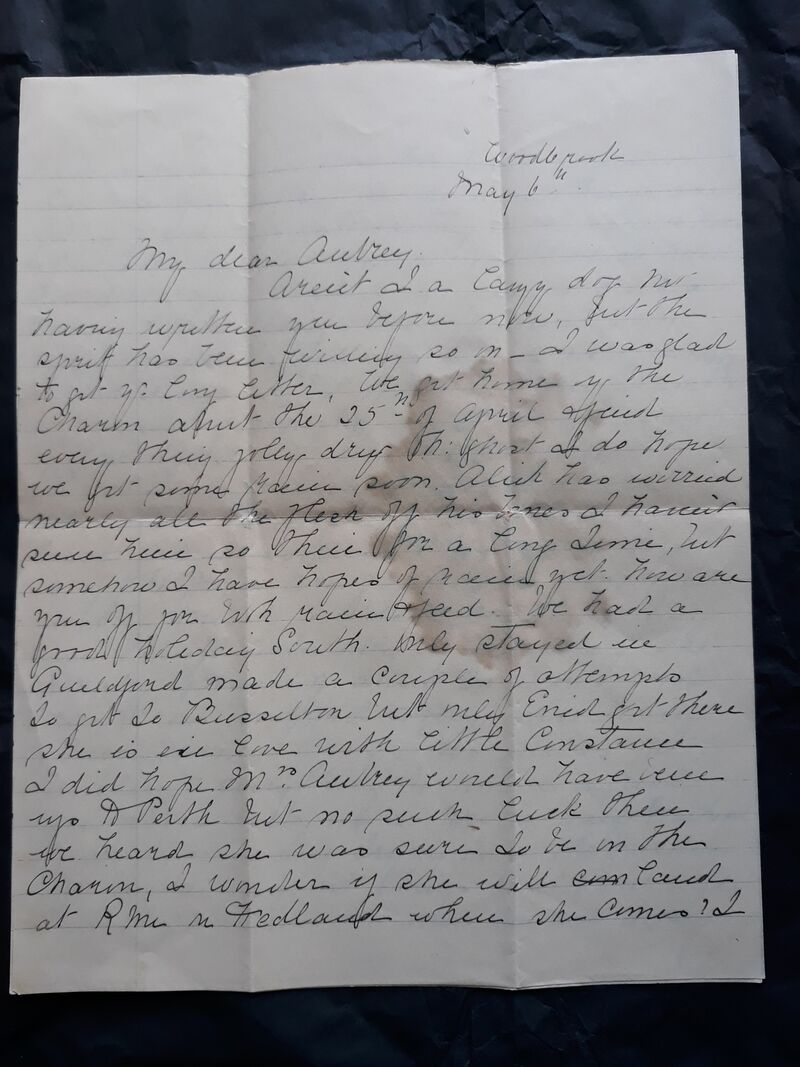 Woodbrook
May 6th
My dear Aubrey.
Arent I a lazy dog not
having written you before now, but the
sprit has been so on _ I was glad
to get yr long letter, We got home by the
Charon about the 25th of April & find
every thing jolly dry Oh: ghost I do hope
we get some rain soon. Alick has worried
nearly all the flesh off his bones I havent
seen him so thin for a long time, but
somehow I have hopes of rain yet. how are
you off for both rain & feed. We had a
good holiday South. Only stayed in
Guildford made a couple of attempts
to get to Busselton but only Enid got there
she is in love with little Constance
I did hope Mrs. Aubrey would have come
up to Perth but no such luck then
we heard she was sure to be on the
Charon, I wonder if she will com land
at Rbne or Hedland when she comes? I